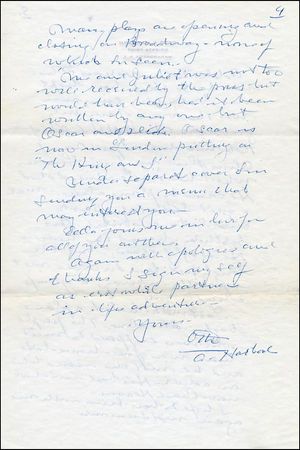 Many plays are opening and
closing on Broadway - none of
which I've seen.
"Me and Juliet" was not too
well received by the press - but
would have been had it been
written by any one - but
Oscar and Dick. Oscar is
now in London putting on
"The King and I"
Under separate cover I'm
sending you a menu that
may interest you.
joins me in love for
all of you out there.
Again with apologies and
thanks I sign myself
as erstwhile partner
in life adventure -
Yours
Otto
A Harbach